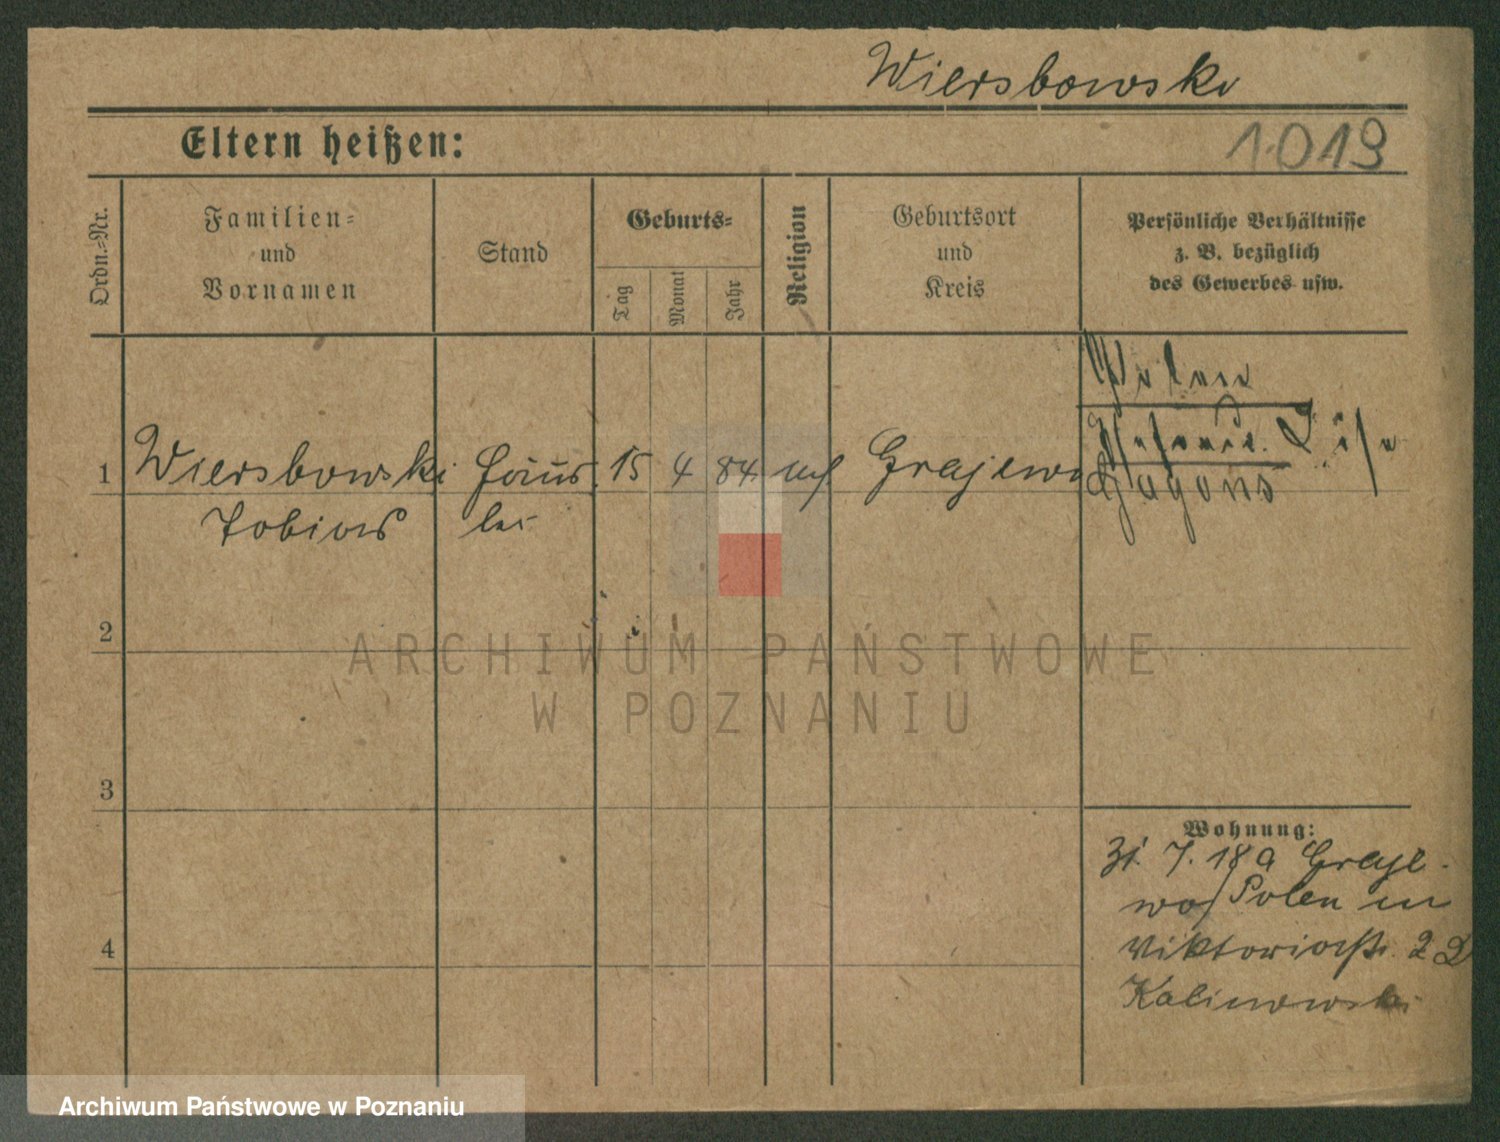 Wiersbowski
Eltern heißen:
1019
Ordn.-Nr.
Familien-
und
Vornamen
Stand
Geburts-
Tag
Monat
Jahr
Religion
Geburtsort
und
Kreis
Persönliche Verhältnisse
z. B. bezüglich
des Gewerbes usw.
Polen
1
Wiersbowski
Tobias
15
4
84
Grajewo
2
3
4
Wohnung:
Zt. 7. 18 a Graje-
wo / Polen in
Viktoriastr. 22
Kalinowski
ARCHIWUM PAŃSTWOWE
W POZNANIU
Archiwum Państwowe w Poznaniu